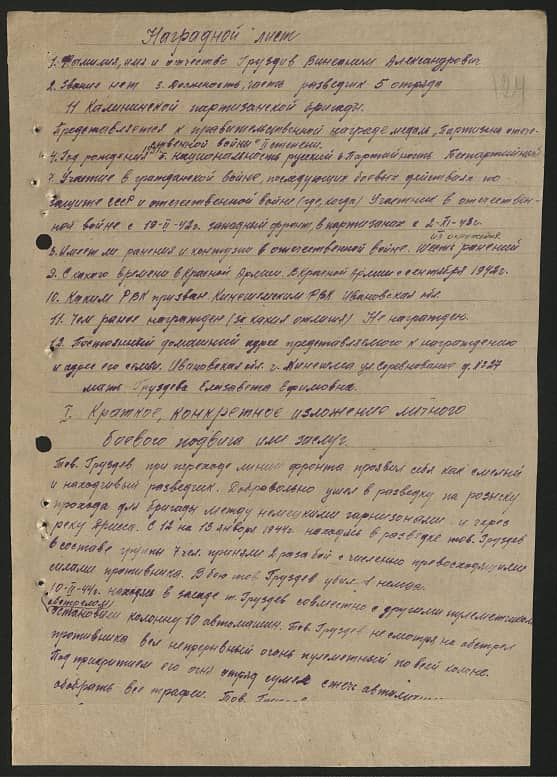 Наградной лист
124
1. Фамилия, имя и отчество Груздев Виниамим Александрович
2. Звание нет 3. Должность, часть разведчик 5 отряда
11 Калининской партизанской бригады.
Представляется к правительственной награде медаль "Партизна отече-
ственной войны" II степени.
4. Год рождения 5. национальность русский 6 Партийность Беспартийный
7. Участие в гражданской войне, последующих боевых действиях по
защите СССР и отечественной войне (где, когда) Участник в отечествен-
ной войне с 10-II-42г. западный фронт, в партизанах с 2-XI-43г.
8. Имеет ли ранения и контузии в отечественной войне. Шесть ранений
9. С какого времени в Красной Армии. В Красной армии с сентября 1942г.
10. Каким РВК призван. Кинешемским РВК Ивановская обл.
11. Чем ранее награжден (за какия отличия) Не награжден.
12. Постоянный домашний адрес представляемого к награждению
и адрес его семьи. Ивановская обл. г. Кинешма ул. Соревнования д. №27
мать Груздева Елизавета Ефимовна.
I. Краткое, конкретное изложение личного
боевого подвига или заслуг.
Тов. Груздев при переходе линии фронта проявил себя как смелый
и находчивый разведчик. Добровольно ушел в разведку по розыску
прохода для бригады между немецкими гарнизонами и через
реку Дрисса. С 12 на 13 января 1944г. находясь в разведке тов. Груздев
в составе группы 7 чел. приняли 2 раза бой с численно превосходящими
силами противника. В бою тов Груздев убил 1 немца.
10-III-44г. находясь в засаде т. Груздев совместно с другими пулеметчиками
обстреляли
остановили колонну 10 автомашин. Тов. Груздев несмотря на обстрел
противника вел непрерывный огонь пулеметный по всей колоне.
Под прикрытием его огня отряд сумел сжечь
забрать все трофеи. Тов.